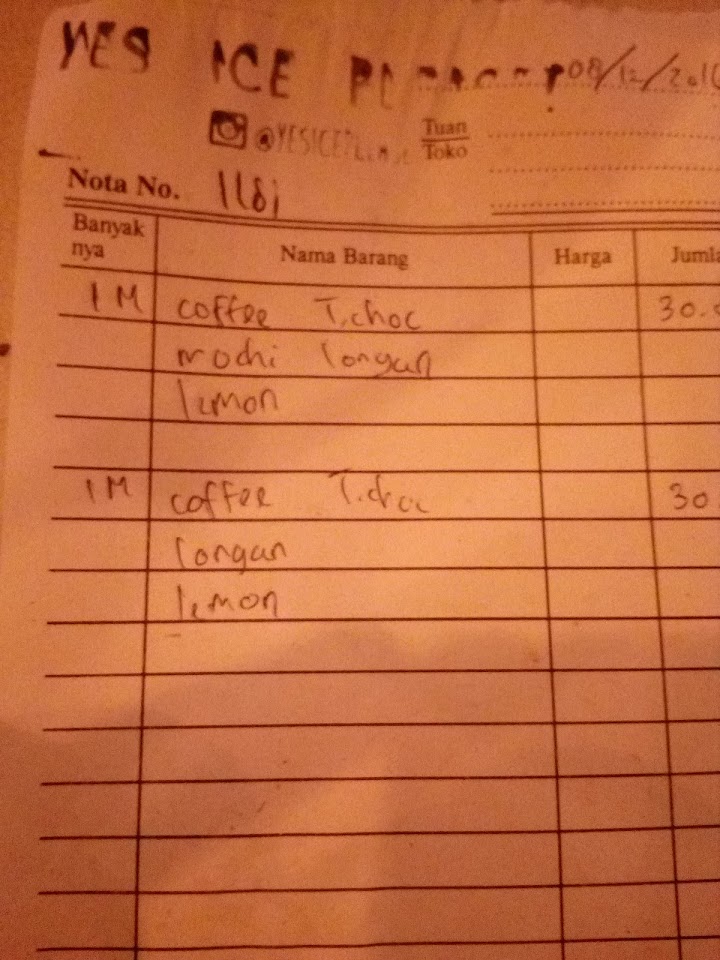 YES ICE 08/12/201
Tuan
Toko
Nota No.
Banyak nya Nama Barang Harga Jumla
1 M coffee T.choc 30.
mochi longan
lemon
1 M coffee T.choc 30.
longan
lemon